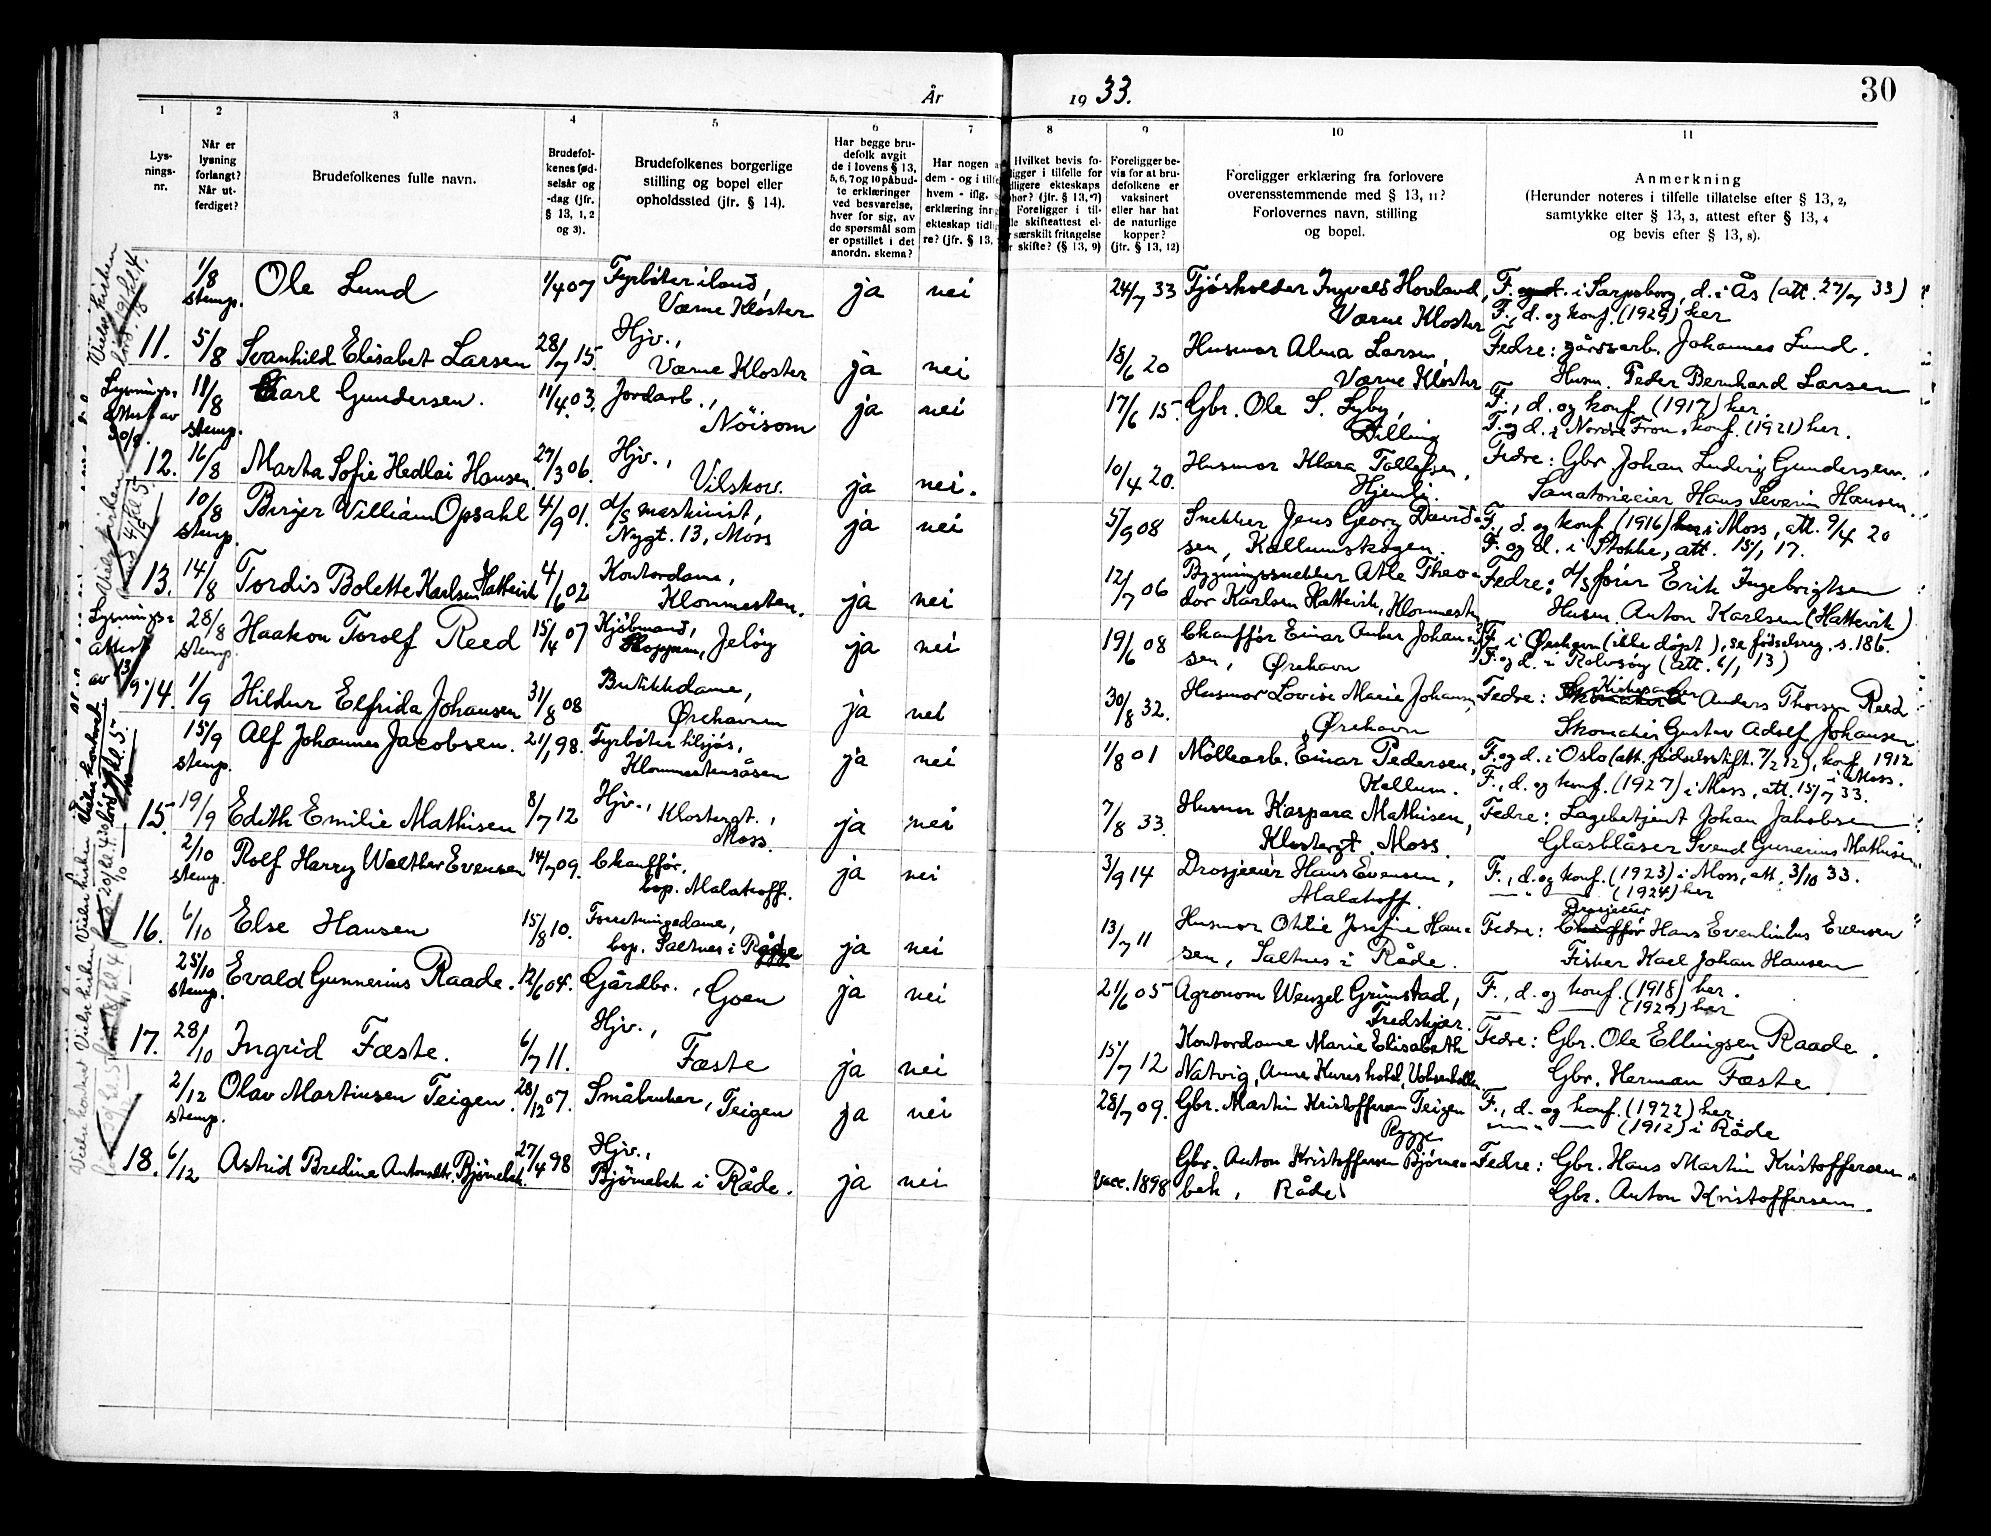 År 1933.
30
1 2 3 4 5 6 7 8 9 10 11
Lysningsnr.
Når er lysning forlangt? Når utferdiget?
Brudefolkenes fulle navn.
Brudefolkenes fødselsår og -dag (jfr. § 13, 1, 2 og 3).
Brudefolkenes borgerlige stilling og bopel eller opholdssted (jfr. § 14).
Har begge brudefolk avgit de i lovens § 13, 5, 6, 7 og 10 påbudte erklæringer ved besvarelse, hver for sig, av de spørsmål som er opstillet i det anordn. skema?
Har nogen a
dem - og i tilfe
hvem - iflg. s
erklæring inng
ekteskap tidlig
re? (jfr. § 13,
Hvilket bevis fo-
ligger i tilfelle for
dligere ekteskaps
phør? (jfr. § 13, 7)
Foreligger i til-
lle skifteattest el-
r særskilt fritagelse
r skifte? (§ 13, 9)
Foreligger bevis for at brudefolkene er vaksinert eller har hat de naturlige kopper? (jfr. § 13, 12)
Foreligger erklæring fra forlovere overensstemmende med § 13, 11? Forlovernes navn, stilling og bopel.
Anmerkning
(Herunder noteres i tilfelle tillatelse efter § 13, 2, samtykke efter § 13, 3, attest efter § 13, 4 og bevis efter § 13, 8).
1/8 stemp. Ole Lund 1/4 07 Fyrbøter iland, Værne Kloster ja nei 24/7 33 Fjøsholder Ingvald Hovland, Værne Kloster F. i Sarpsborg, d. i Ås (att. 27/7 33)
F., d. og konf. (1929) her
11. 5/8 Svanhild Elisabet Larsen 28/7 15. Hjv., Værne Kloster ja nei 18/6 20 Husmor Alma Larsen, Værne Kloster Fedre: gårdsarb. Johannes Lund.
Husm. Peder Bernhard Larsen
Lysnings-attest av 30/8.
11/8 stemp. Carl Gundersen. 11/4 03. Jordarb., Nöisom ja nei 17/6 15. Gbr. Ole S. Lyby, Dilling F., d. og konf. (1917) her.
F. og d. i Nordre Fron, konf. (1921) her.
12. 16/8 Marta Sofie Hedlai Hansen. 27/3 06. Hjv., Vilskov. ja nei. 10/4 20. Husmor Klara Tollefsen, Hjemli. Fedre: Gbr. Johan Ludvig Gundersen.
Sanatorieeier Hans Severin Hansen.
10/8 stemp. Birger Villiam Opsahl 4/9 01. d/s maskinist, Nygt. 13, Moss ja nei 5/9 08 Snekker Jens Georg Davidsen, Kallumskogen. F., d. og konf. (1916) i Moss, att. 9/4 20
F. og d. i Stokke, att. 15/1 17.
13. 14/8 Tordis Bolette Karlsen Hattevik 4/6 02 Kontordame, Klommesten. ja nei 12/7 06 Bygningssnekker Atle Theodor Karlsen Hattevik, Klommesten Fedre: d/s fører Erik Ingebrigtsen
Husm. Anton Karlsen (Hattevik)
Lysnings-attest av 13/9.
28/8 stemp. Haakon Torolf Reed 15/4 07 Kjöbmand, Jelöy ja nei 19/6 08 Chauffør Einar Anker Johansen, Ørehavn F. i Ørehavn (ikke døpt), se fødselsreg. s. 186.
F. og d. i Rolvsøy (att. 6/1 13)
14. 1/9 Hildur Elfrida Johansen 31/8 08 Butikkdame, Ørehavnen ja nei 30/8 32. Husmor Lovise Marie Johansen, Ørehavn Fedre: Anders Thorsen Reed
Skomaker Gustav Adolf Johansen
15/9 stemp. Alf Johannes Jacobsen. 21/1 98. Fyrbøter tilsjös, Klommestensåsen ja nei 1/8 01 Møllearb. Einar Pedersen, Kallum. F. og d. i Oslo (att. fødselsstift. 7/2 12), konf. 1912 i Moss.
F., d. og konf. (1927) i Moss, att. 15/7 33.
15. 19/9 Edith Emilie Mathisen 8/7 12 Hjv., Klostergt., Moss. ja nei 7/8 33. Husmor Kaspara Mathisen, Klostergt. Moss. Fedre: Lagebetjent Johan Jakobsen
Glasblåser Svend Gunerius Mathisen
2/10 stemp. Rolf Harry Walther Evensen 14/7 09. Chauffør, bop. Malakoff. ja nei 3/9 14 Drosjeeier Hans Evensen, Malakoff. F., d. og konf. (1923) i Moss, att. 3/10 33.
— " — (1924) her
16. 6/10 Else Hansen 15/8 10. Forretningsdame, bop. Saltnes i Råde ja nei 13/7 11 Husmor Othlie Josefine Hansen, Saltnes i Råde. Fedre: Drosjeeier Hans Evenlinius Evensen
Fisker Karl Johan Hansen
25/10 stemp. Evald Gunnerius Raade. 12/6 04. Gårdbr., Goen ja nei 21/6 05 Agronom Wenzel Grimstad, Fredskjær. F., d. og konf. (1918) her.
— " — (1927) her
17. 28/10 Ingrid Fæste. 6/7 11. Hjv., Fæste ja nei 15/7 12 Kontordame Marie Elisabeth Natvig, Anne Kures hold, Voksenkollen Fedre: Gbr. Ole Ellingsen Raade.
Gbr. Herman Fæste
2/12 stemp. Olav Martinsen Teigen. 28/12 07. Småbruker, Teigen ja nei 28/7 09. Gbr. Martin Kristoffersen Teigen Rygge F., d. og konf. (1922) her
— " — (1912) i Råde
18. 6/12 Astrid Bredine Antonsdtr. Bjørnebek. 27/4 98 Hjv., Bjørnebek i Råde. ja nei Vacc. 1898 Gbr. Anton Kristoffersen Bjørnebek, Råde Fedre: Gbr. Hans Martin Kristoffersen.
Gbr. Anton Kristoffersen.